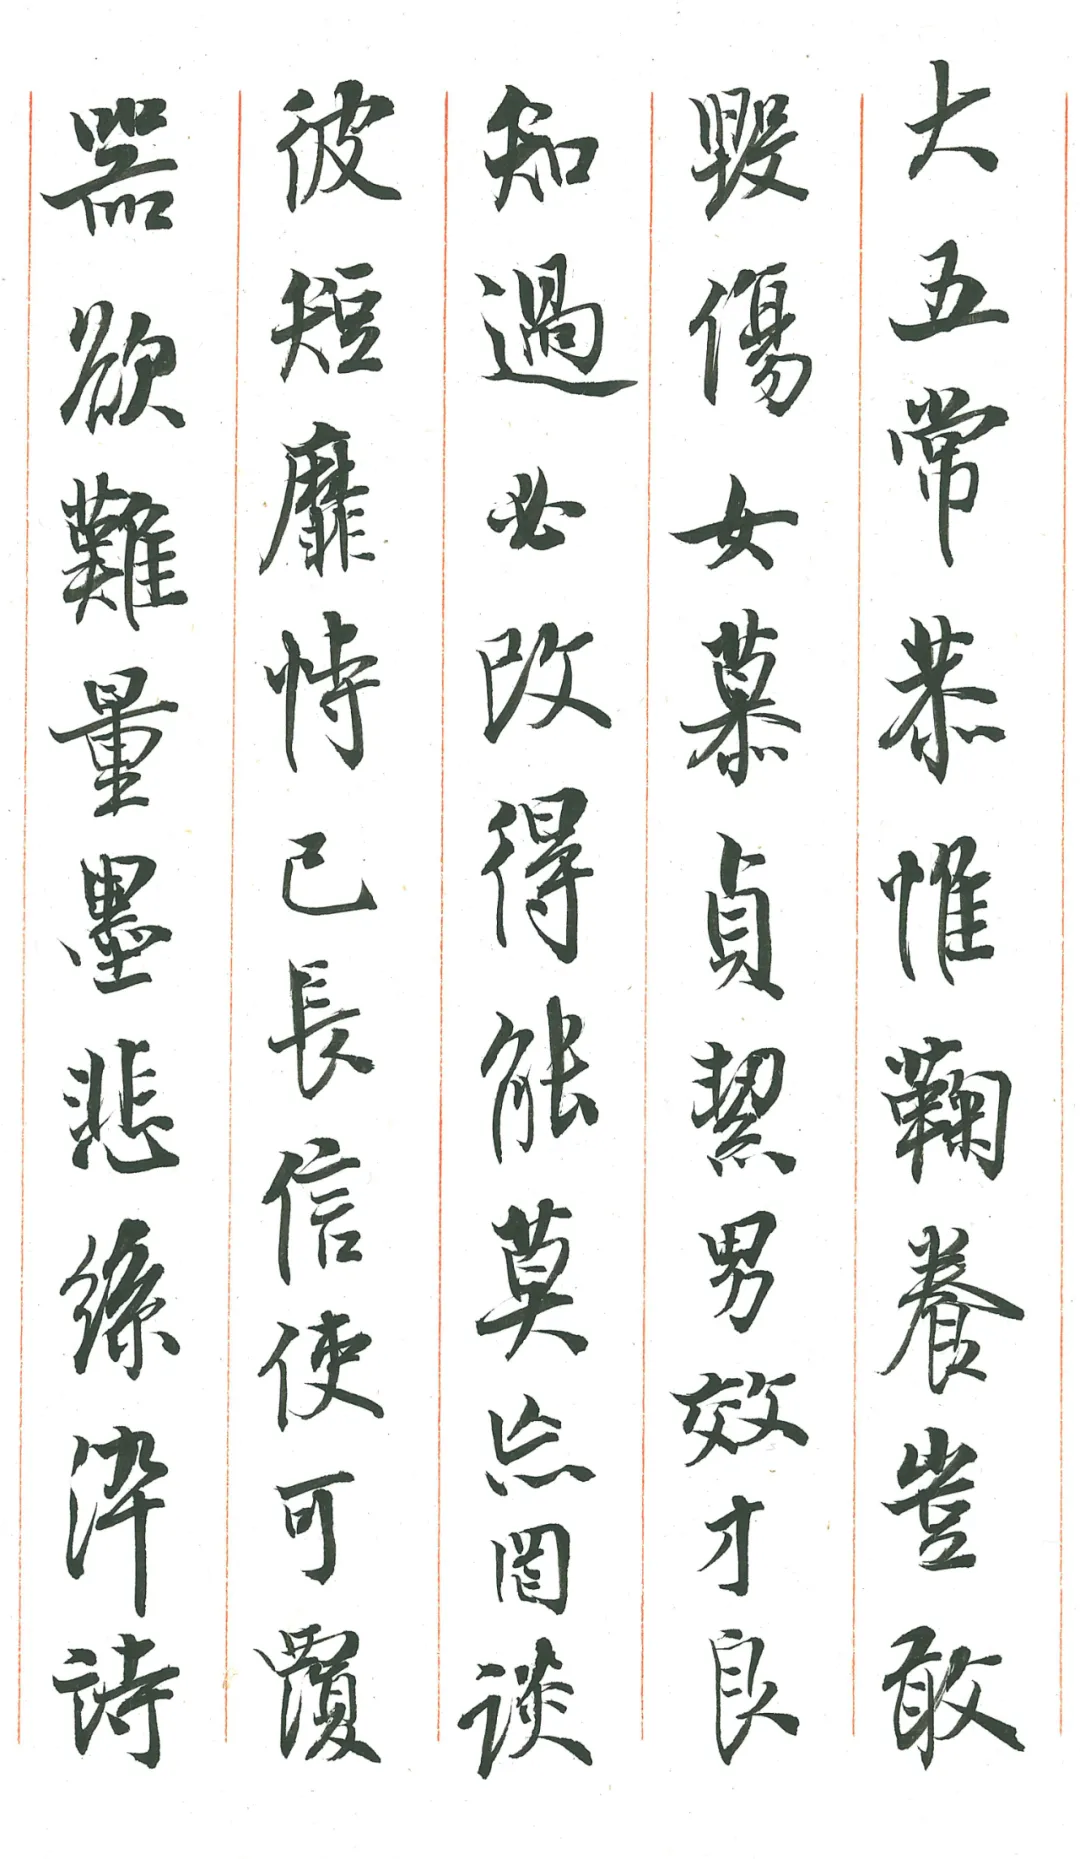 大五常恭惟鞠養豈敢
毀傷女慕貞絜男效才良
知過必改得能莫忘罔談
彼短靡恃己長信使可覆
器欲難量墨悲絲淬詩